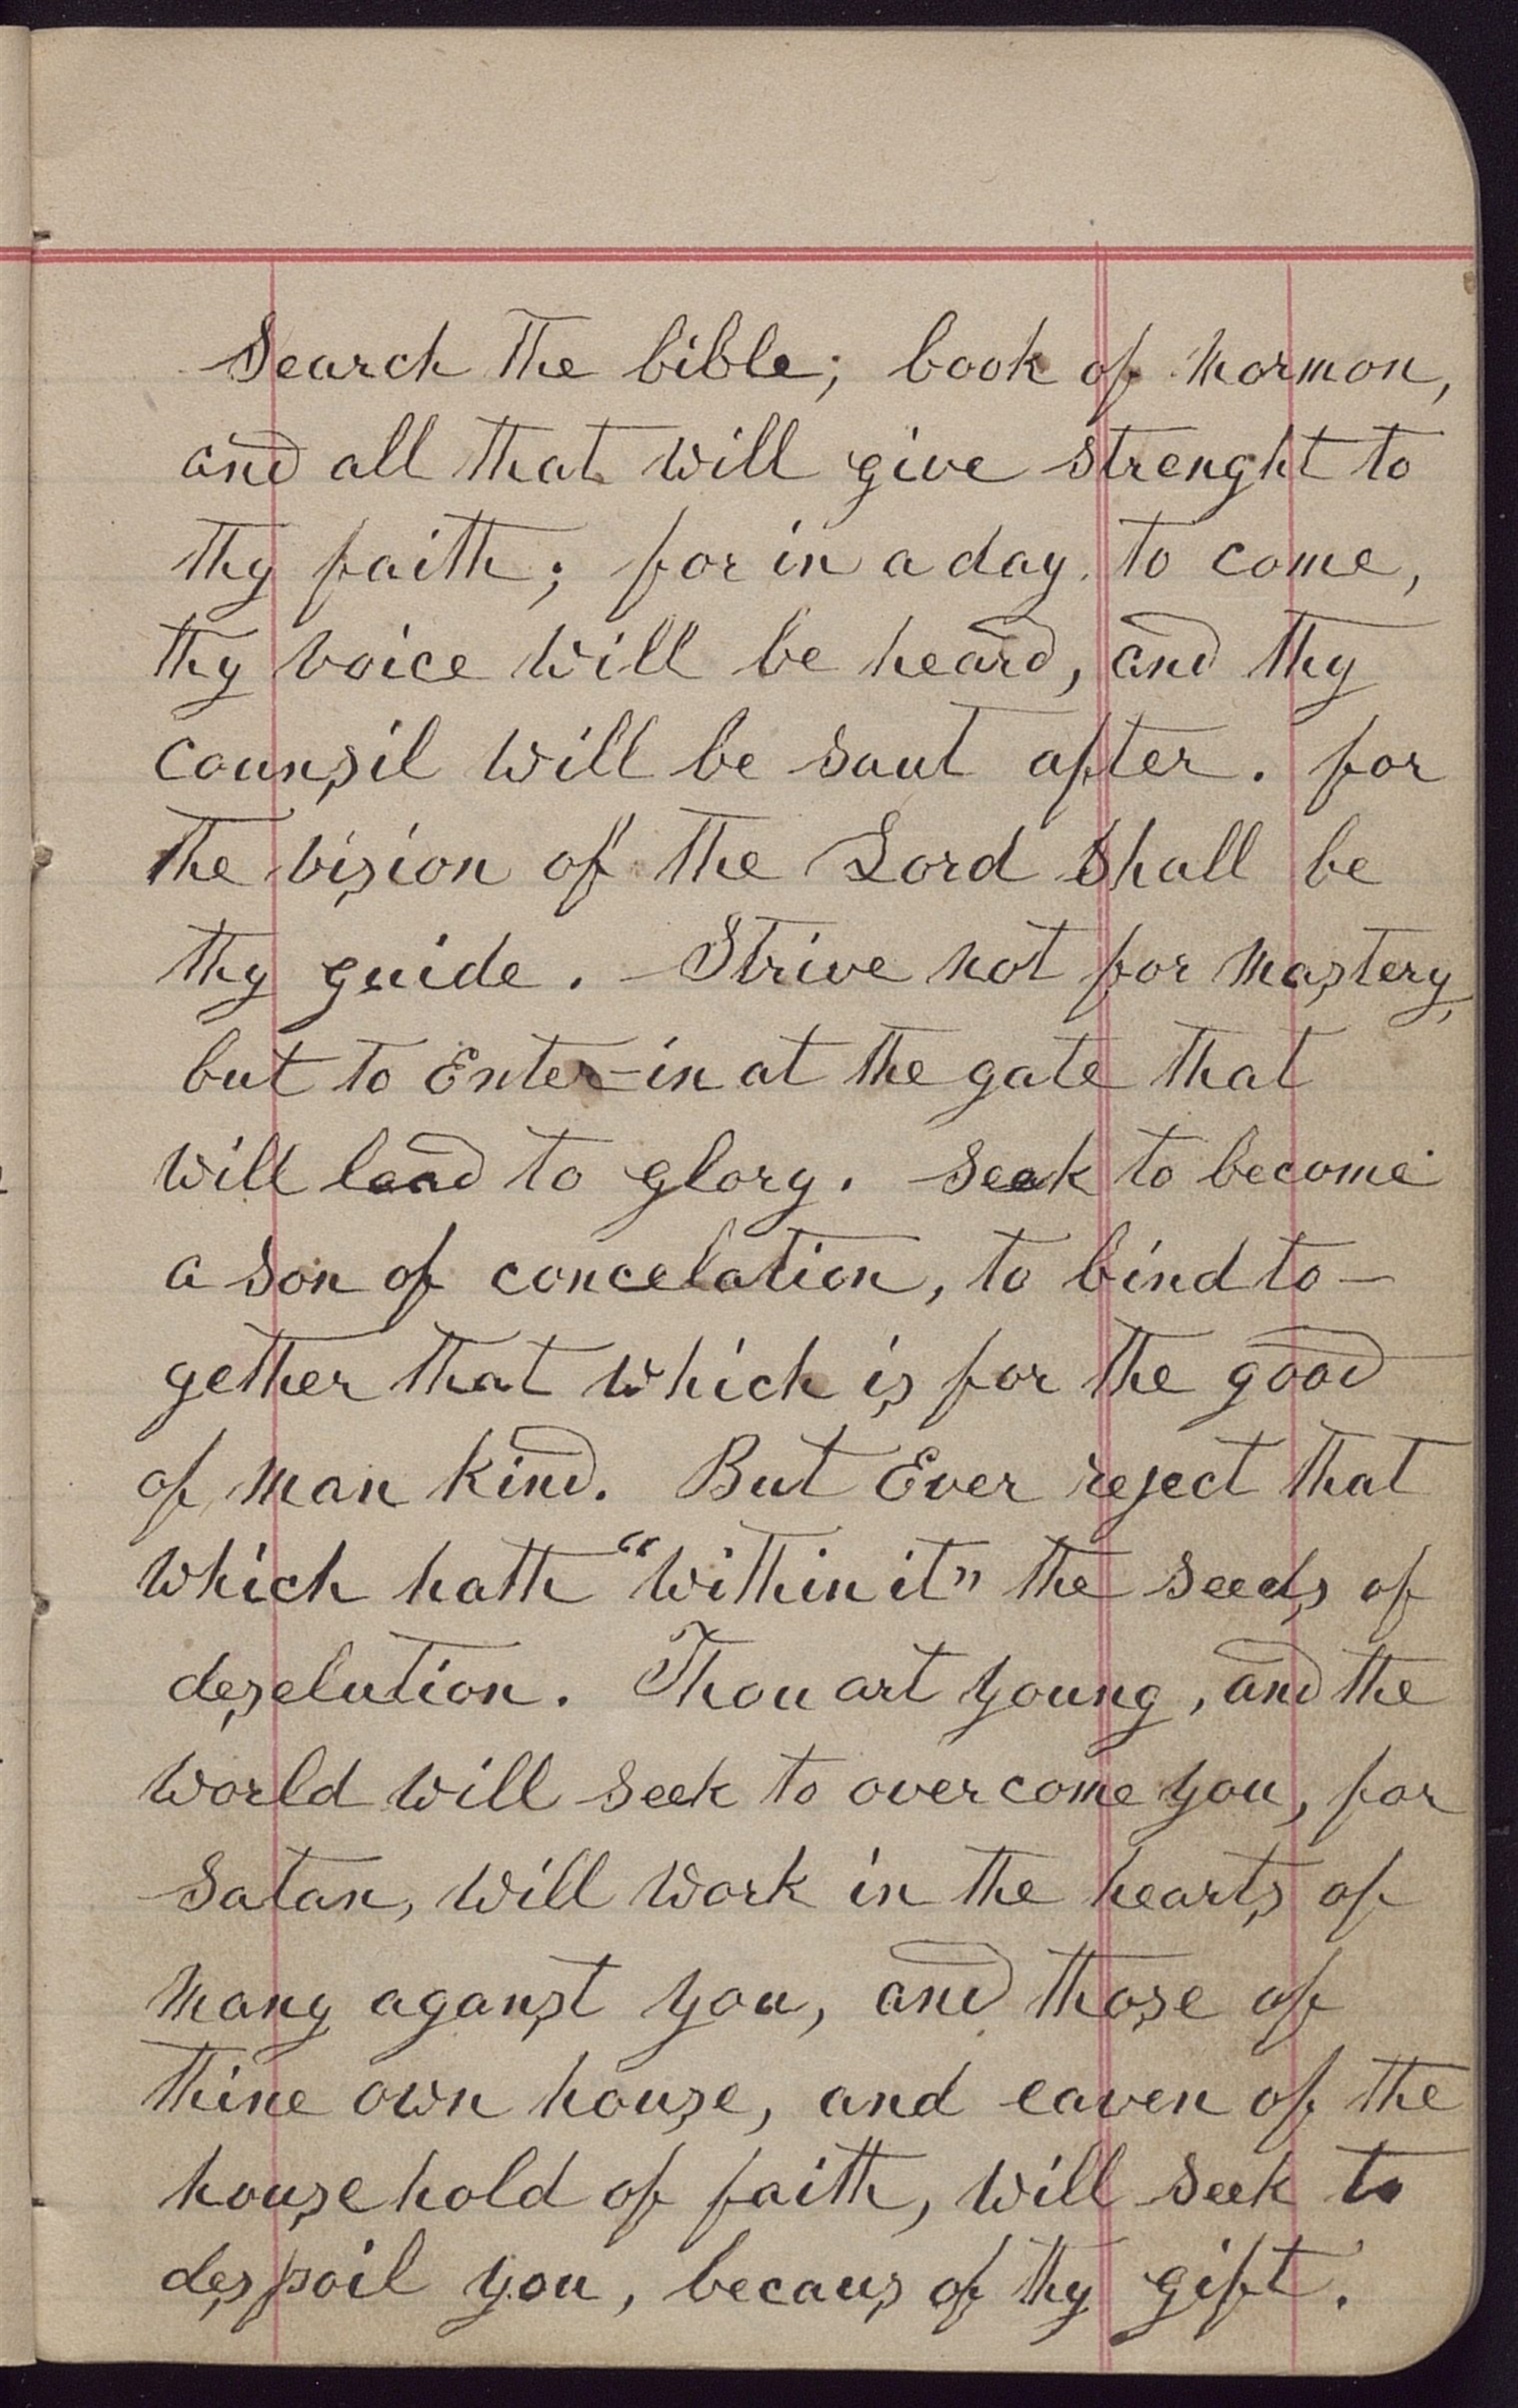 Search the bible; book of Mormon,
and all that will give strenght to
thy faith; for in a day to come,
thy voice will be heard, and thy
counsil will be saut after. for
the vision of the Lord shall be
thy guide. Strive not for mastery,
but to Enter-in at the gate that
will lead to glory. Seek to become
a son of concelation, to bind to-
gether that which is for the good
of man kind. But Ever reject that
which hath "within it" the seeds of
deselution. Thou art young, and the
world will seek to over come you, for
Satan, will work in the hearts of
many aganst you, and those of
thine own house, and eaven of the
house hold of faith, will seek to
despoil you, becaus of thy gift.